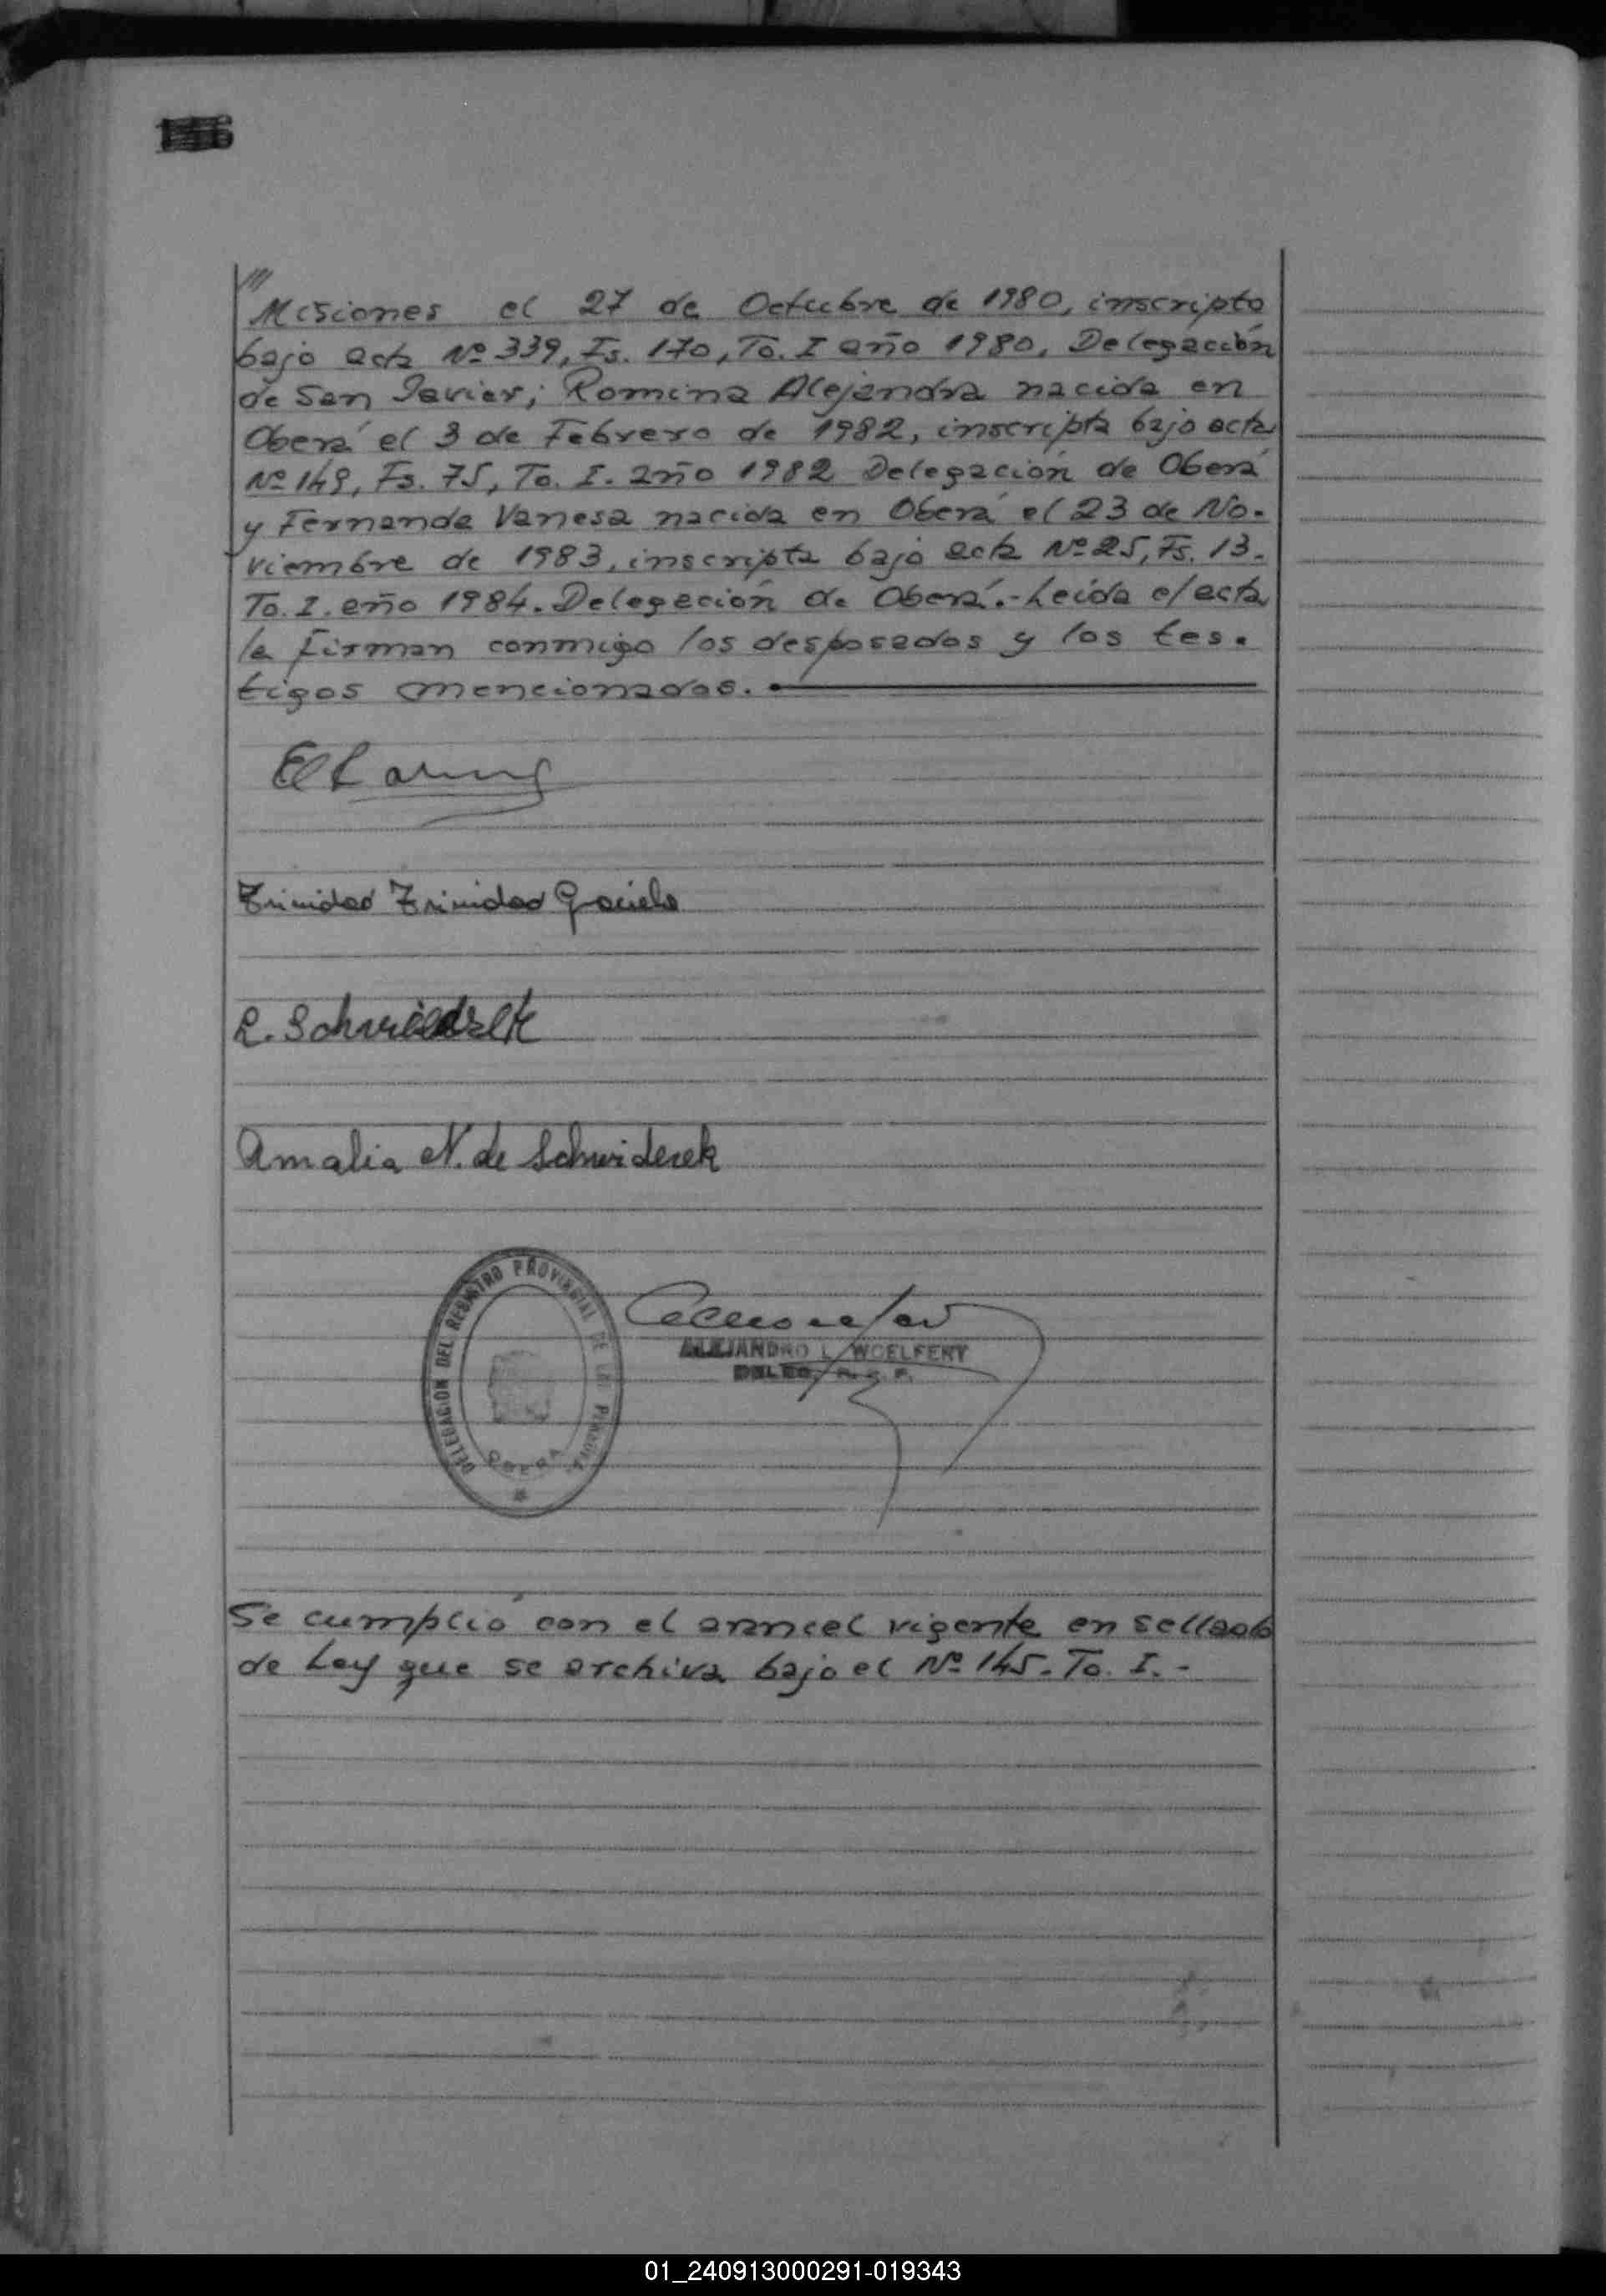 ///
Misiones el 27 de Octubre de 1980, inscripto
bajo acta Nº 339, Fs. 170, To. I año 1980, Delegación
de San Javier; Romina Alejandra nacida en
Oberá el 3 de Febrero de 1982, inscripta bajo acta
Nº 149, Fs. 75, To. I. año 1982 Delegación de Oberá
y Fernanda Vanesa nacida en Oberá el 23 de No-
viembre de 1983, inscripta bajo acta Nº 25, Fs. 13.
To. I. año 1984. Delegación de Oberá.- Leída el acta
la firman conmigo los desposados y los tes-
tigos mencionados.
Trinidad Trinidad Graciela
Amalia N. de Schwiderek
DELEGACION DEL REGISTRO PROVINCIAL DE LAS PERSONAS
OBERA
ALEJANDRO L. WOELFERT
DELEG. R. P. P.
Se cumplió con el arancel vigente en sellado
de Ley que se archiva bajo el Nº 145. To. I.-
01_240913000291-019343